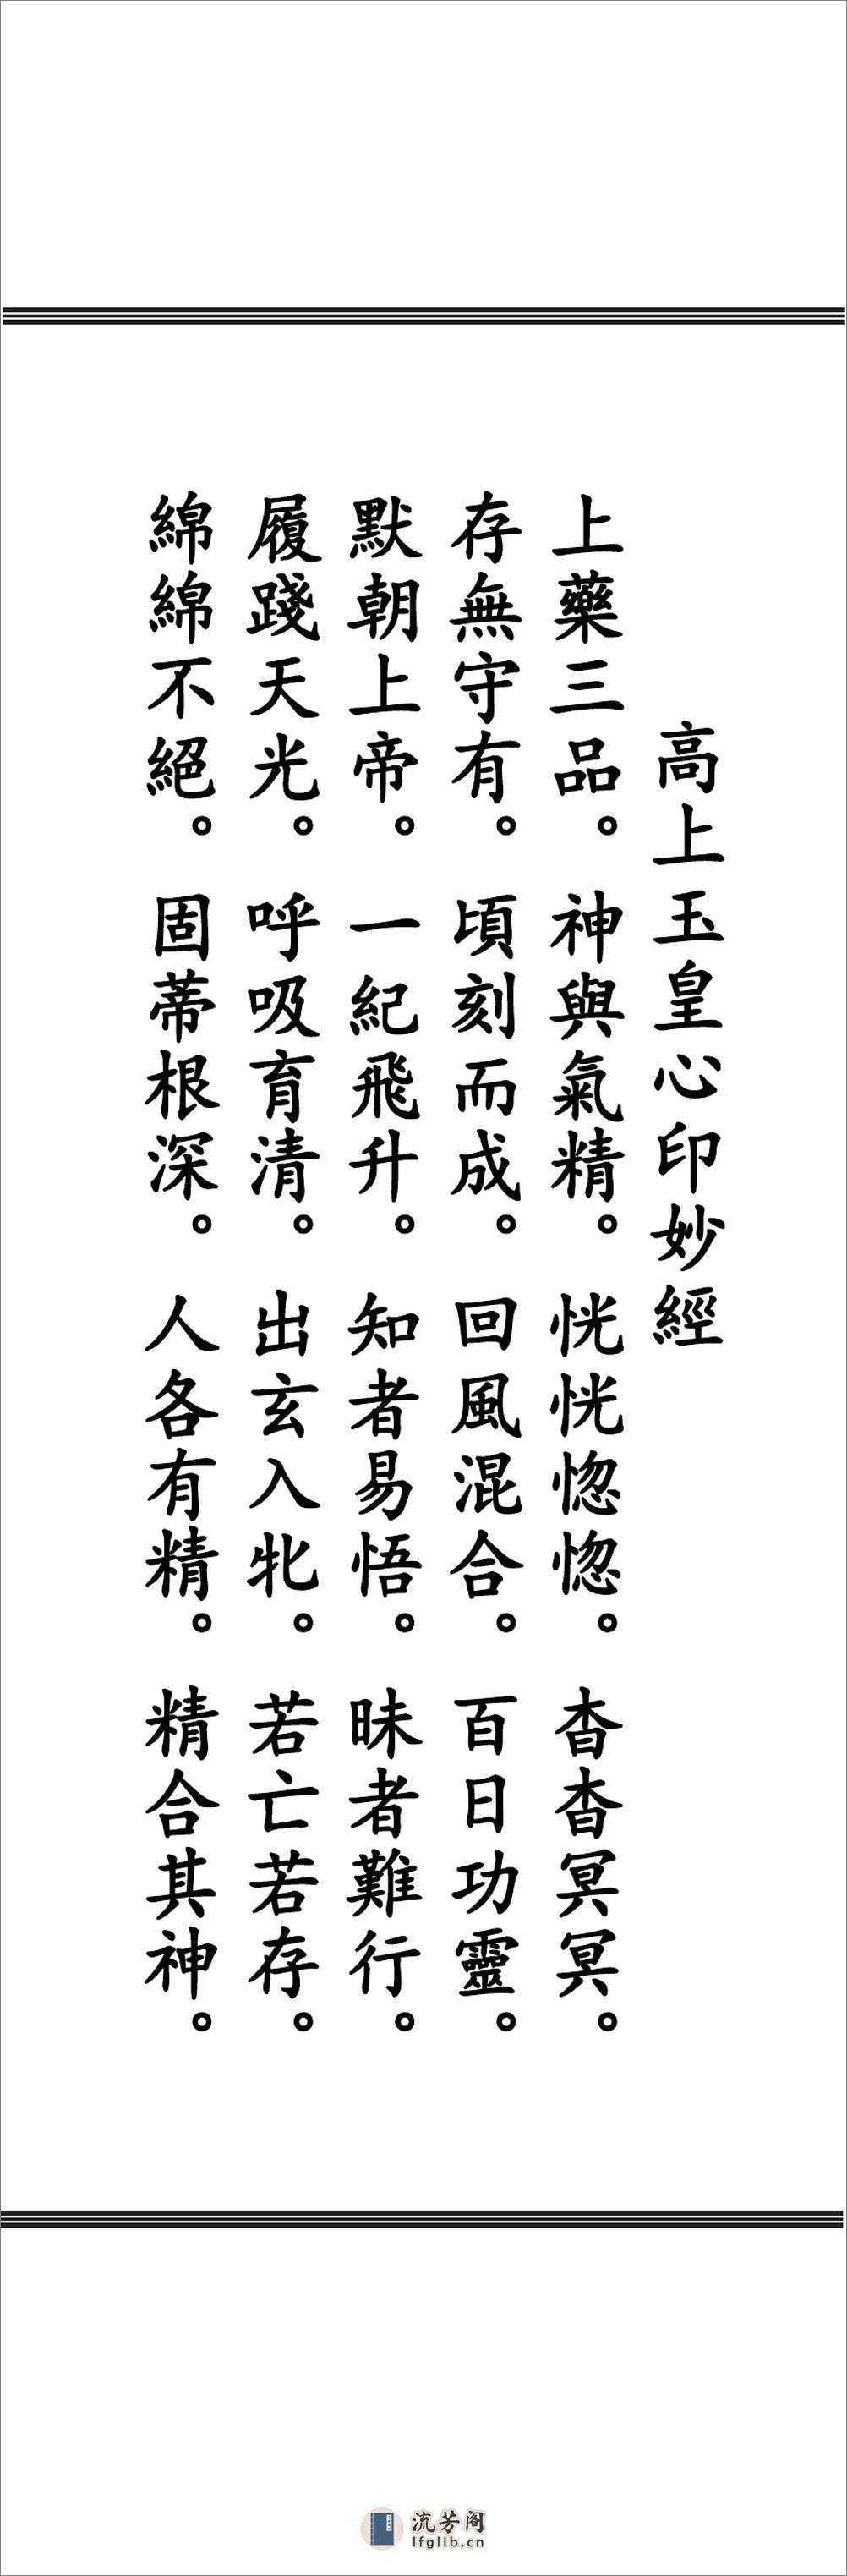 高上玉皇心印妙經
上藥三品。神與氣精。恍恍惚惚。杳杳冥冥。
存無守有。頃刻而成。回風混合。百日功靈。
默朝上帝。一紀飛升。知者易悟。昧者難行。
履踐天光。呼吸育清。出玄入牝。若亡若存。
綿綿不絕。固蒂根深。人各有精。精合其神。
流芳阁
lfglib.cn